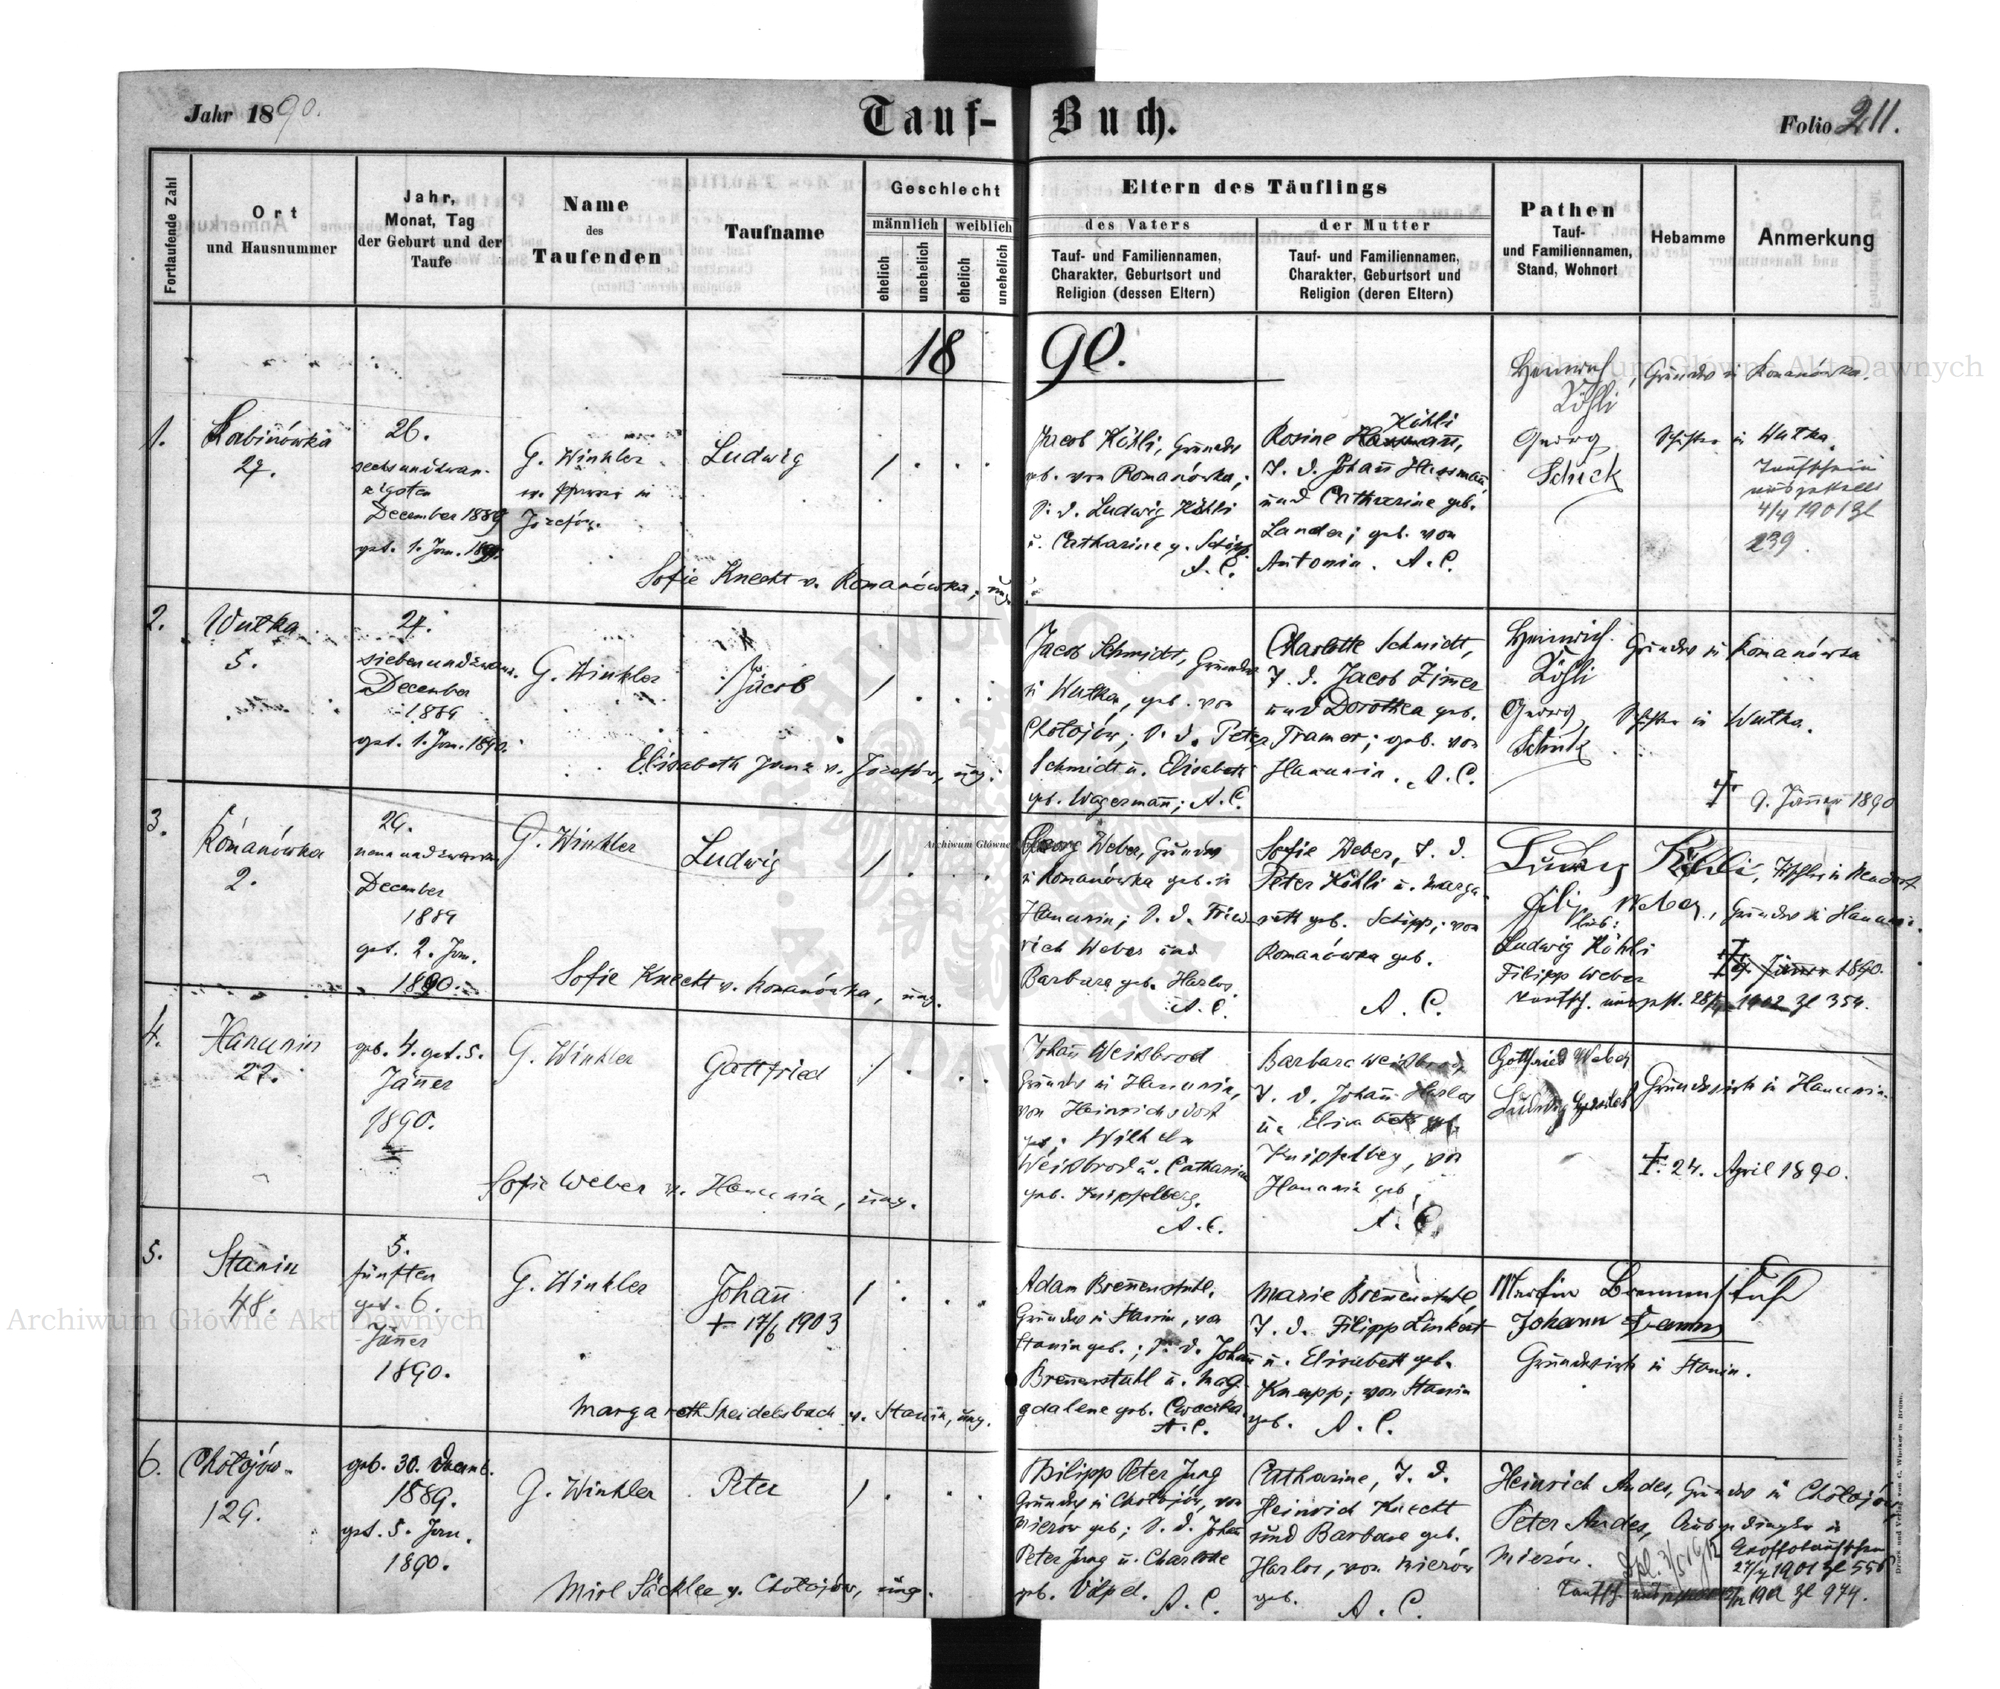 Jahr 1890.
Tauf-Buch.
Folio 211.
Fortlaufende Zahl
Ort
und Hausnummer
Jahr,
Monat, Tag
der Geburt und der
Taufe
Name
des
Taufenden
Taufname
Geschlecht
männlich
weiblich
ehelich
unehelich
ehelich
unehelich
Eltern des Täuflings
des Vaters
Tauf- und Familiennamen,
Charakter, Geburtsort und
Religion (dessen Eltern)
der Mutter
Tauf- und Familiennamen,
Charakter, Geburtsort und
Religion (deren Eltern)
Pathen
Tauf-
und Familiennamen,
Stand, Wohnort
Hebamme
Anmerkung
1890.
1.
Sabinówka
27.
26.
sechsundzwan-
zigsten
December 1889
get. 1. Jan. 1890.
G. Winkler
ev. Pfarrer in
Józefów.
Ludwig
1
Sofie Knecht v. Romanówka, ung.
Jacob Köhli, Grundw
geb. von Romanówka;
S. d. Ludwig Köhli
u. Catharine g. Schipp
A. C.
Rosine Köhli
T. d. Johañ Hassmañ
und Catharine geb.
Lander; geb. von
Antonin. A. C.
Heinrich Köhli, Grundw in Romanówka.
Georg Schick
in Wutka.
Taufschein
ausgestellt
4/4 1901 Zl
239.
2.
Wutka
5.
27.
siebenundzwanz.
December
1889
get. 1. Jan. 1890.
G. Winkler
Jacob
1
Elisabeth Janz v. Józefów, ung.
Jacob Schmidt, Grundw
in Wutka, geb. von
Chołojów; S. d. Peter
Schmidt u. Elisabeth
geb. Wagermañ; A. C.
Charlotte Schmidt,
T. d. Jacob Zimer
und Dorothea geb.
Tramer; geb. von
Hanunin. A. C.
Heinrich Köhli Grundw in Romanówka
Georg Schick in Wutka.
† 9. Jäner 1890
3.
Romanówka
2.
29.
neunundzwanz
December
1889
get. 2. Jan.
1890.
G. Winkler
Ludwig
1
Sofie Knecht v. Romanówka, ung.
Georg Weber, Grundw
in Romanówka geb. in
Hanunin; S. d. Fried
rich Weber und
Barbara geb. Harlos.
A. C.
Sofie Weber, T. d.
Peter Köhli u. Marga-
reth geb. Schipp; von
Romanówka geb.
A. C.
Ludwig Köhli
Filip Weber, Grundw in Hanunin.
Ludwig Köhli
Filipp Weber
† 9. Jäner 1890.
1902 Zl 354.
4.
Hanunin
27.
geb. 4. get. 5.
Jäñer
1890.
G. Winkler
Gottfried
1
Sofie Weber v. Hanunin, ung.
Johañ Weisbrod
Grundw in Hanunin,
von Heinrichsdorf
geb; Wilhelm
Weisbrod u. Catharina
geb. Knipfelberg.
A. C.
Barbara Weisbrod,
T. d. Johañ Harlos
u. Elisabeth geb.
Knipfelberg, von
Hanunin geb.
A. C.
Gottfried Weber
Ludwig
Grundwirth in Hanunin.
† 24. April 1890.
5.
Stanin
48.
5.
fünften
get. 6.
Jäner
1890.
G. Winkler
Johañ
† 17/6 1903
1
Margareth Sheidelsbach v. Stanin, ung.
Adam Breñenstuhl,
Grundw in Stanin, von
Stanin geb.; S. d. Johañ
Breñenstuhl u. Mag-
gdalena geb. Cwaczka.
A. C.
Marie Breñenstuhl
T. d. Filipp Linkert
u. Elisabeth geb.
Knapp; von Stanin
geb. A. C.
Martin Brennenstuhl
Johann Damm
Grundwirth in Stanin.
6.
Chołojów.
129.
geb. 30. Decemb.
1889.
get. 5. Jan.
1890.
G. Winkler
Peter
1
Mirl Säckler v. Chołojów, ung.
Philipp Peter Jung
Grundw in Chołojów, von
Mierów geb; S. d. Johañ
Peter Jung u. Charlotte
geb. Völpel. A. C.
Catharine, T. d.
Heinrich Knecht
und Barbara geb.
Harlos, von Mierów
geb. A. C.
Heinrich Andes, Grundw in Chołojów
Peter Andes, in
Mierów.
27/4 1901 Zl 556
Zl 974.
Druck und Verlag von C. Winiker in Brünn.
Archiwum Główne Akt Dawnych
Archiwum Główne Akt Dawnych